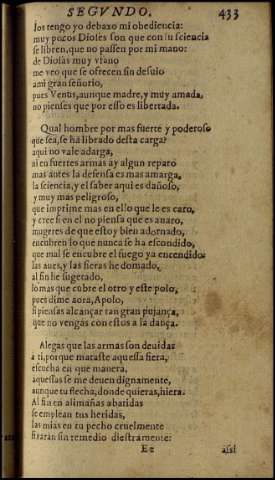 SEGVNDO. 433
los tengo yo debaxo mi obediencia:
muy pocos Dioses son que con su sciencia
se libren, que no passen por mi mano:
de Diosas muy vfano
me veo que se ofrecen sin desuio
a mi gran señorio,
pues Venus, aunque madre, y muy amada,
no pienses que por esso es libertada.
Qual hombre por mas fuerte y poderoso
que sea, se hà librado desta carga?
aqui no vale adarga,
ni en fuertes armas ay algun reparo
mas antes la defensa es mas amarga,
la sciencia, y el saber aqui es dañoso,
y muy mas peligroso,
que imprime mas en ello que le es caro,
y cree si en el no piensa que es auaro,
mugeres de que estoy bien adornado,
encubren lo que nunca se ha escondido,
que mal se encubre el fuego ya encendido
las aues, y las fieras he domado,
al fin he sugetado,
lo mas que cubre el otro y este polo,
pues dime aora, Apolo,
si piensas alcançar tan gran pujança,
que no vengas con estos a la dança.
Alegas que las armas son deuidas
a ti, porque mataste aquessa fiera,
escucha en que manera,
aquessas se me deuen dignamente,
aunque tu flecha, donde quieras, hiera.
Al fin en alimañas abatidas
se emplean tus heridas,
las mias en tu pecho cruelmente
tiraràn sin remedio diestramente:
Ee assi